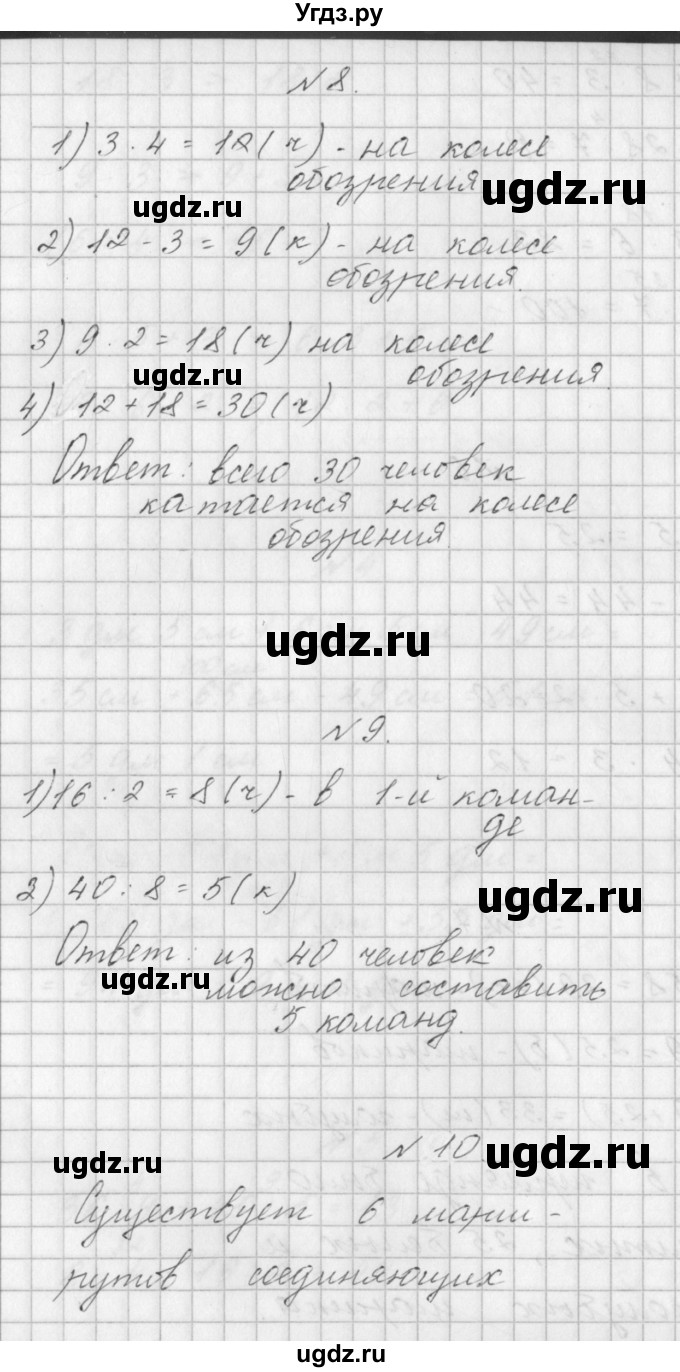 Угдз.ру
№8.
1) 3 · 4 = 12 (ч) - на колесе
обозрения
ugdz.ru
ugdz.ru
2) 12 - 3 = 9 (к) - на колесе
обозрения.
3) 9 · 2 = 18 (ч) на колесе
обозрения.
ugdz.ru
4) 12 + 18 = 30 (ч)
Ответ: всего 30 человек
катается на колесе
обозрения.
ugdz.ru
№9.
1) 16 : 2 = 8 (ч) - в 1-й коман-
де
2) 40 : 8 = 5 (к)
ugdz.ru
Ответ: из 40 человек
ugdz.ru
можно составить
5 команд.
№10.
ugdz.ru
ugdz.ru
Существует 6 марш-
рутов соединяющих
Угдз.ру